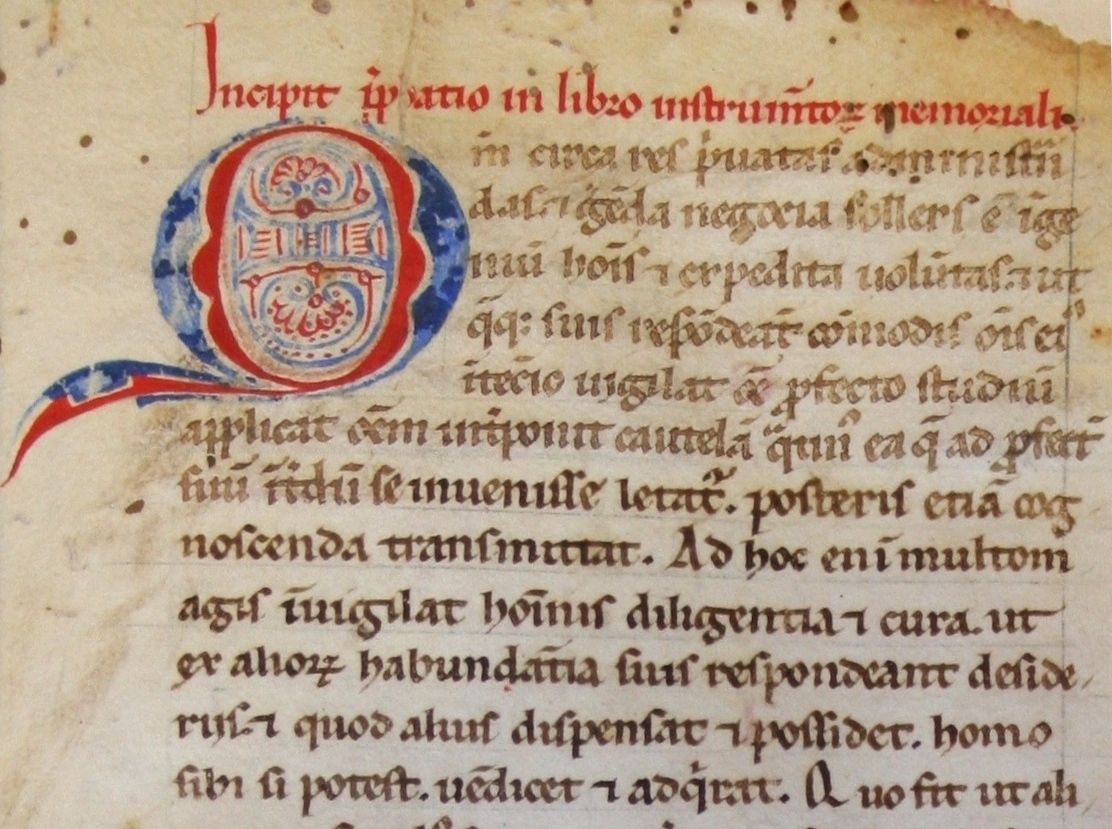 Incipit p̄fatio in libro instrum̄toꝝ memoriali.
in circa res p̓uatas administ̄n
das. ⁊ aḡēda negocia sollers ē īge
nui hoīs ⁊ expedita uolūtas. ⁊ ut
q̄q: suis respōdeat comodis
ītēcio uigilat & ꝓfecto studiū
applicat ēc̄m int̄ponit cautelā ea q̄ ad ꝓfect̄
suū se inuenisse letat᷑. posteris etiā cog
noscenda transmittat. Ad hoc enī multom
agis īuigilat hoīnis diligentia ⁊ cura. ut
ex alioꝝ habundātia suis respondeant deside
riis. ⁊ quod alius dispensat ⁊ possidet. homo
sibi si potest. uēdicet ⁊ adq̓rat. Quo fit ut ali